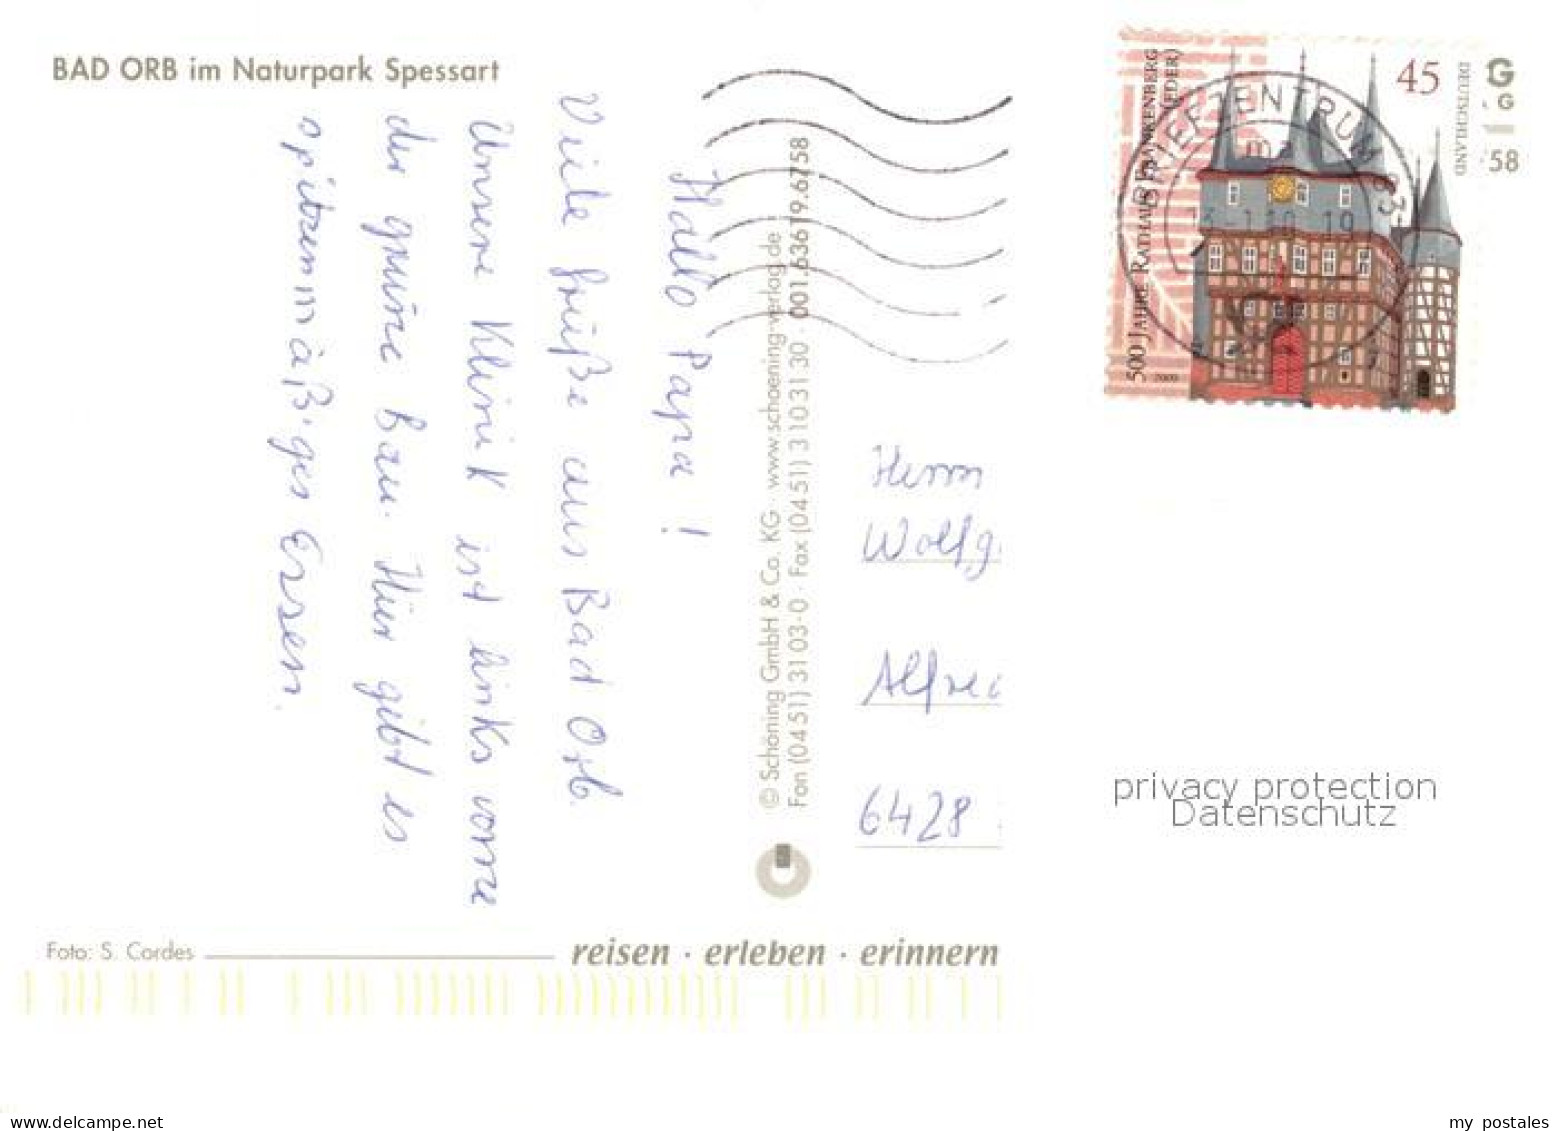 BAD ORB im Naturpark Spessart
Hallo Papa!
Viele Grüße aus Bad Orb.
Unsere Klinik ist links vorne
der grüne Bau. Hier gibt es
spitzenmäßiges Essen.
© Schöning GmbH & Co. KG · www.schoening-verlag.de
Fon (0451) 3103-0 · Fax (0451) 3103130 · 001.63619.6758
500 JAHRE RATHAUS FRANKENBERG
(EDER)
2009
45
DEUTSCHLAND
BRIEFZENTRUM 63
G
G
58
Herrn
Wolfg
Alfre
6428
privacy protection
Datenschutz
Foto: S. Cordes
reisen · erleben · erinnern
www.delcampe.net
my_postales